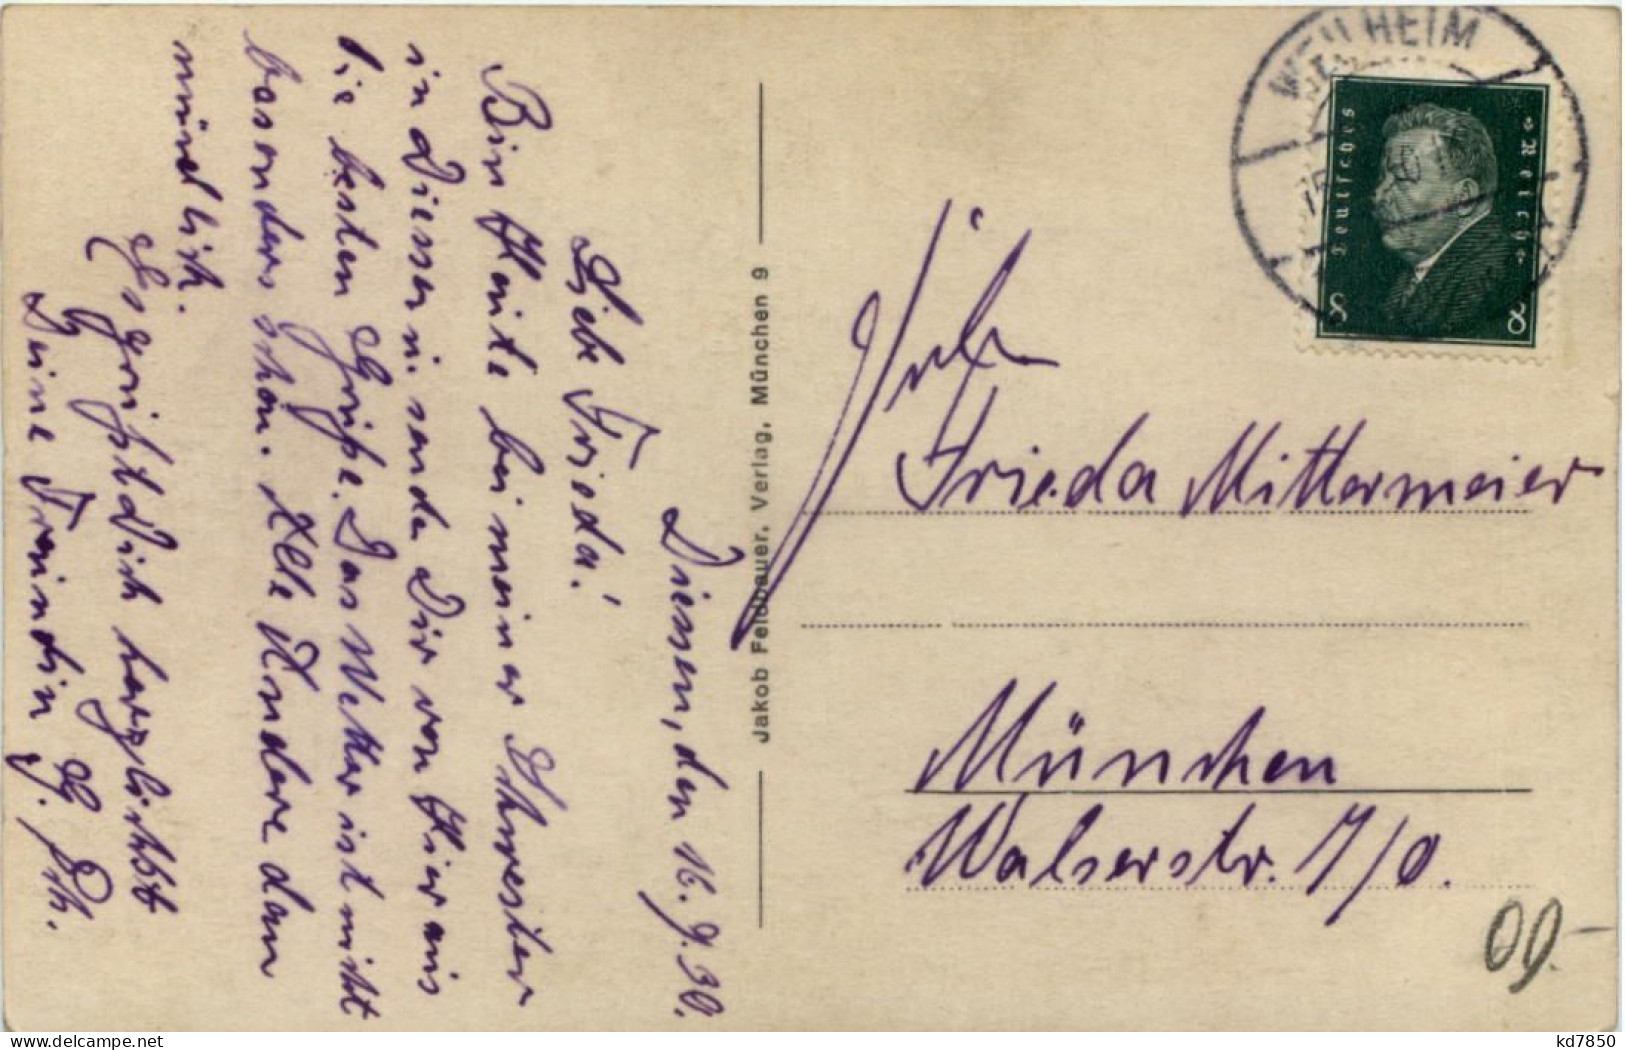 Diessen, den 16.9.30.
Liebe Frieda!
Bin Heute bei meiner Schwester
in Diessen u. sende Dir von Hier aus
die besten Grüße. Das Wetter ist nicht
besonders schön. Alle Andere dann
mündlich.
Es grüßt Dich herzlichst
Deine Freundin G. Sch.
Jakob Feldbauer, Verlag, München 9
WEILHEIM
Deutsches Reich
8 8
Frl.
Frieda Mittermeier
München
Walserstr. 7/0.
kd7850